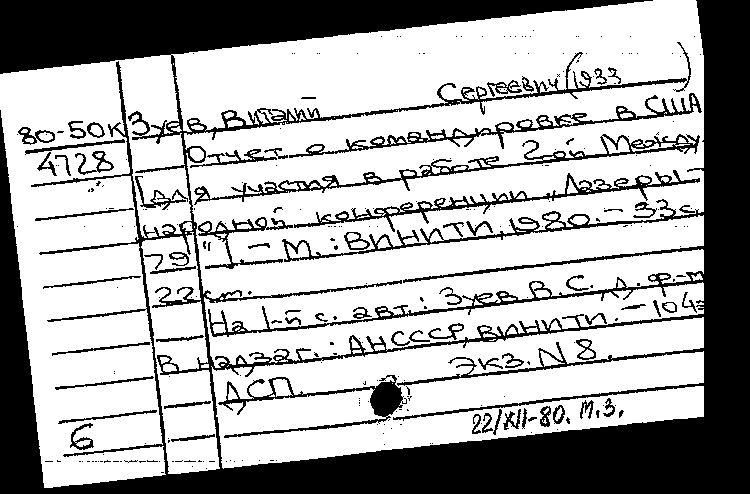 Сергеевич (1933      )
80-50к Зуев, Виталий
4728 Отчет о командировке в США
[для участия в работе 2-ой Между-
народной конференции „Лазеры-
79"]. - М.: ВИНИТИ, 1980. - 33 с.
22 см.
На 1-й с. авт.: Зуев В.С., д. ф.-м
В надзаг.: АН СССР, ВИНИТИ. - 104э
ДСП. Экз. N 8.
6 22/XII-80. М.З.